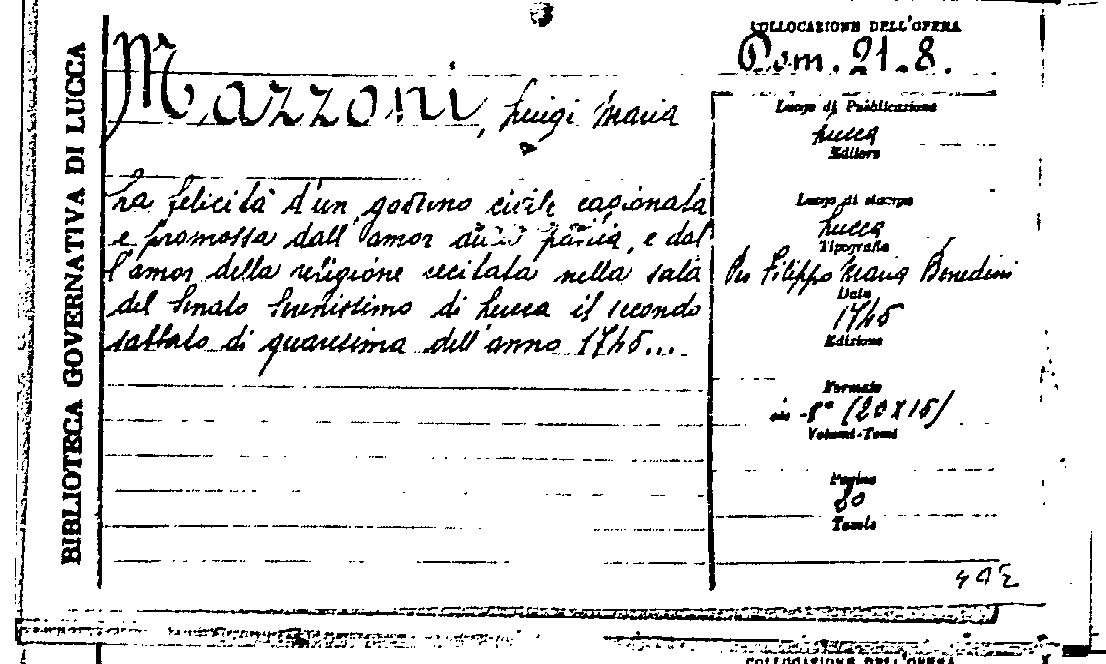 BIBLIOTECA GOVERNATIVA DI LUCCA
Mazzoni, Luigi Maria
La felicità d'un governo civile cagionata
e promossa dall'amor della patria, e dal
l'amor della religione recitata nella sala
del Senato Serenissimo di Lucca il secondo
sabbato di quaresima dell'anno 1745...
COLLOCAZIONE DELL'OPERA
Dom. 21.8.
Luogo di Pubblicazione
Lucca
Editore
Luogo di stampa
Lucca
Tipografia
Per Filippo Maria Benedini
Data
1745
Edizione
Formato
in-8° (20x15)
Volumi-Tomi
Pagine
80
Tavole
COLLOCAZIONE DELL'OPERA